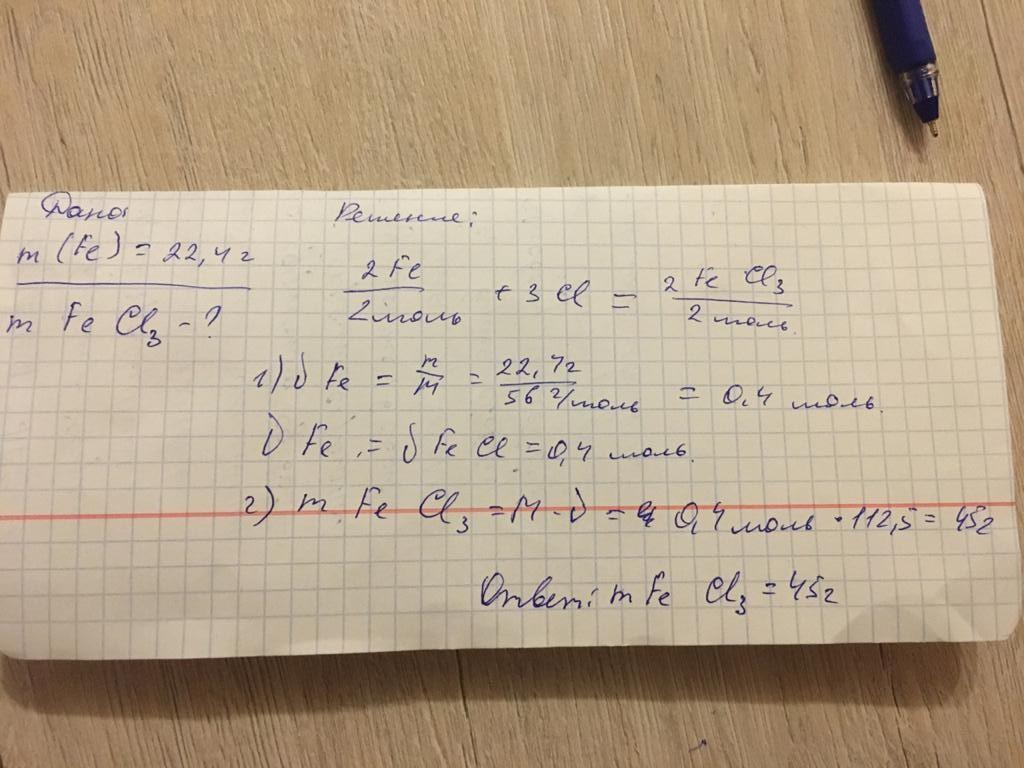 Дано: Решение:
m (Fe) = 22,4 г
m Fe Cl₃ - ?
2 Fe / 2 моль + 3 Cl = 2 Fe Cl₃ / 2 моль.
1) ν Fe = m/M = 22,4г / 56 г/моль = 0,4 моль.
ν Fe = ν Fe Cl = 0,4 моль.
2) m Fe Cl₃ = M · ν = 0,4 моль · 112,5 = 45г
Ответ: m Fe Cl₃ = 45г